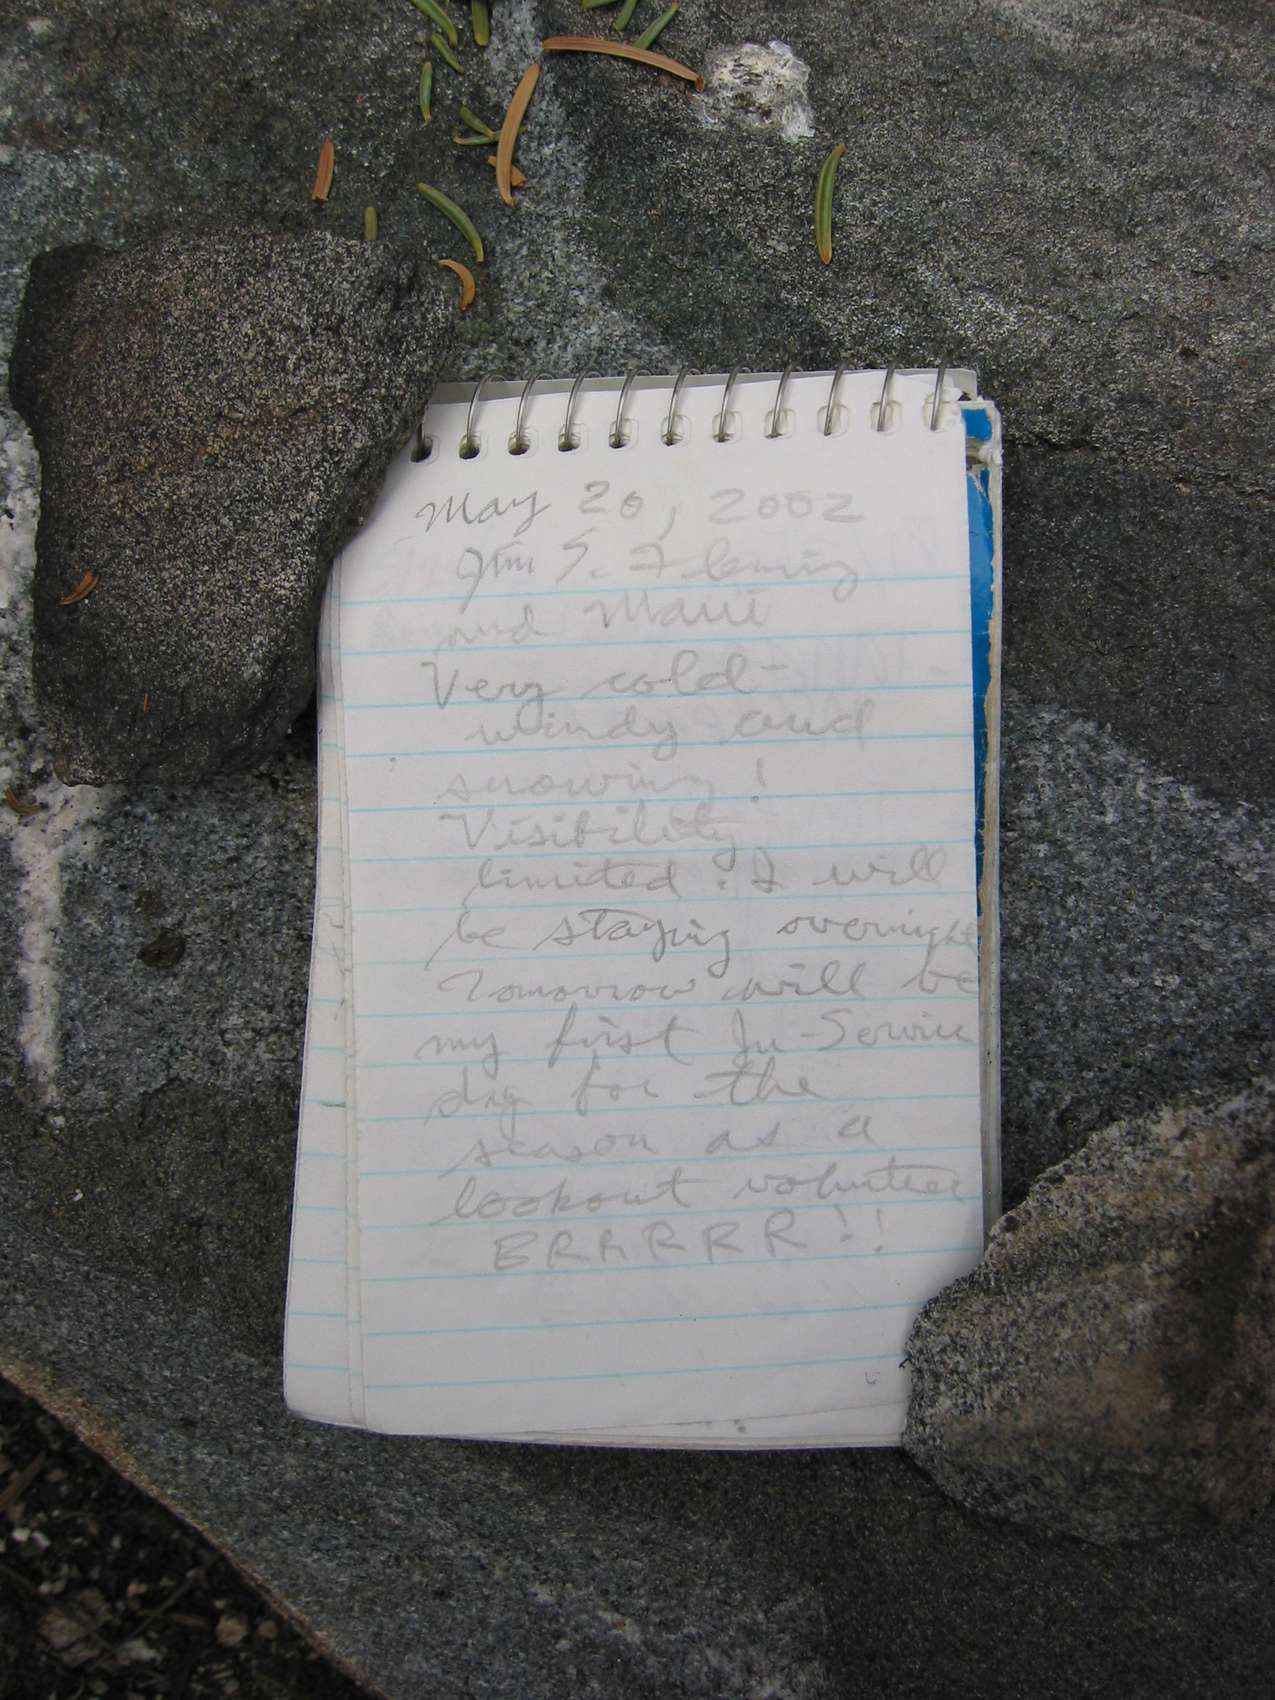 May 20, 2002
Jim S. Fleming
and Maui
Very cold-
windy and
snowing!
Visibility
limited. I will
be staying overnight
Tomorrow will be
my first In-Service
day for the
season as a
lookout volunteer
BRRRRR!!